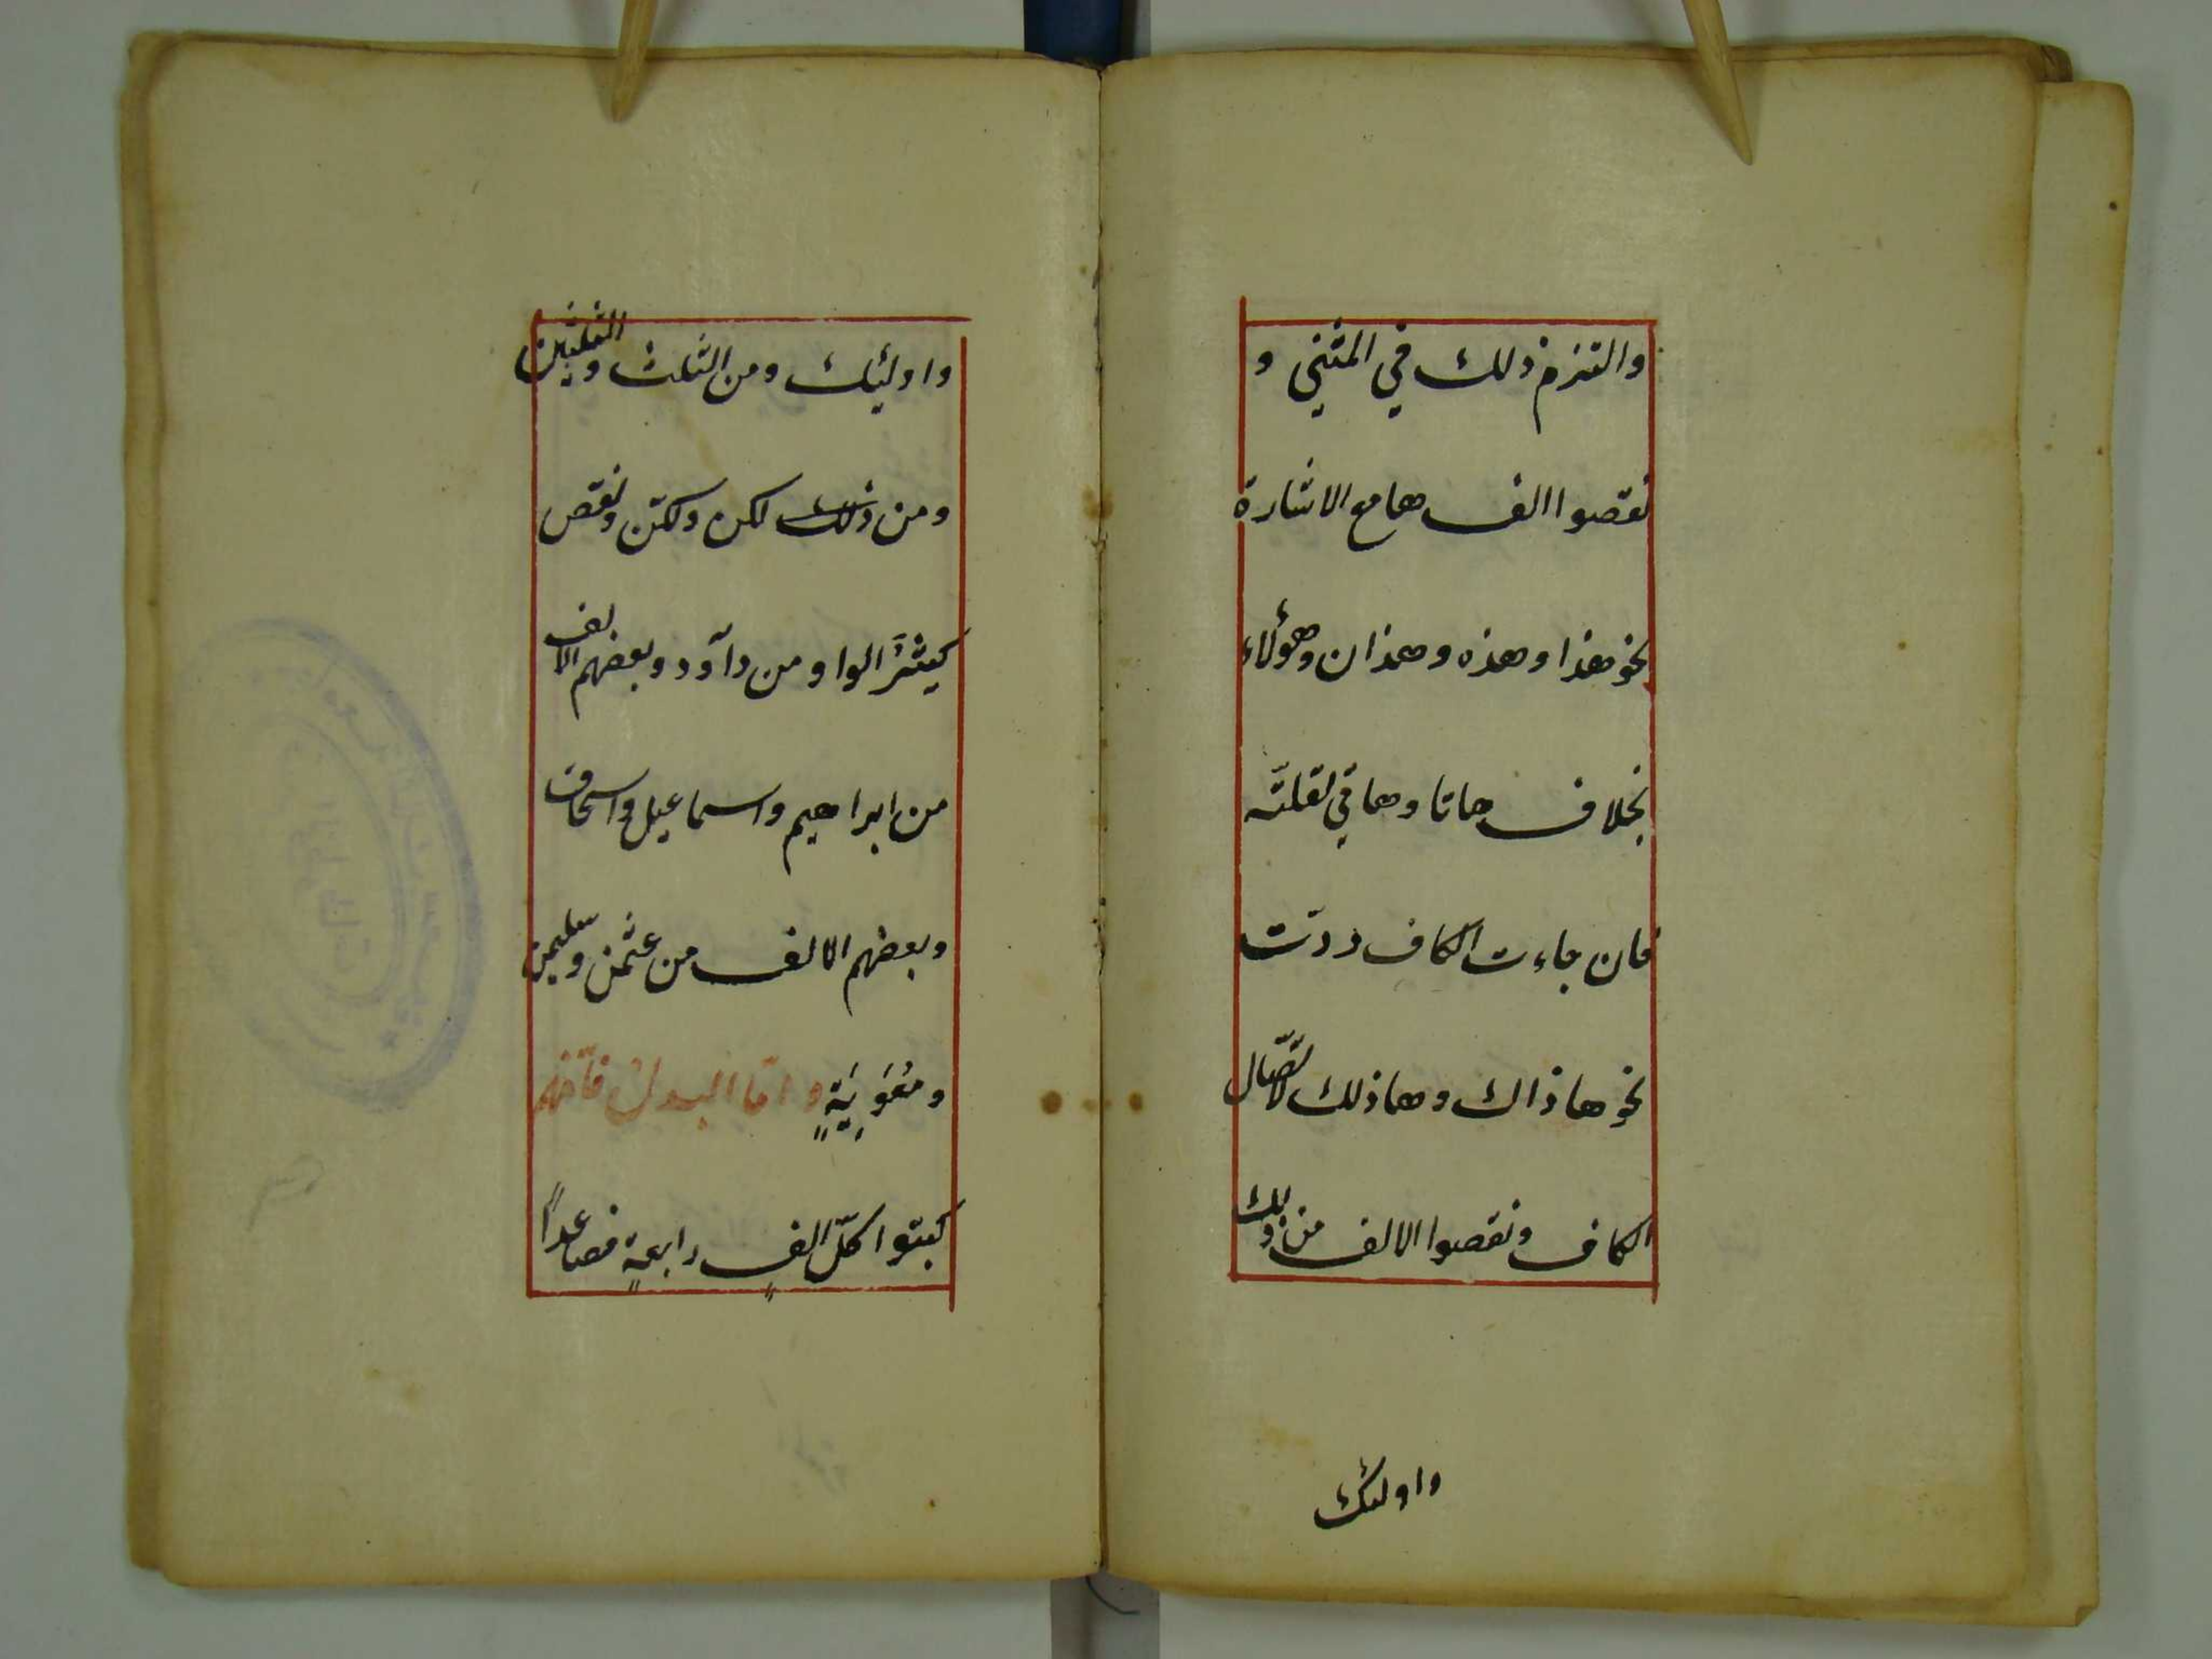 والتزم ذلك في المثني و
نقصوا الف ها مع الاشارة
نحو هذا وهذه وهذان وهؤلاء
بخلاف هاتا وهاتي لقلّته
فان جاءت الكاف ردّت
نحو هاذاك وهاذلك لاتّصال
الكاف ونقصوا الالف من ذلك
واولئك
واولئيك ومن الثلث والثلثين
ومن ذلك لكن ولكنّ ونقص
كيثرَ الواو من دآود وبعضهم الالف
من ابراهيم واسماعيل واسحاق
وبعضهم الالف من عثمن وسليمن
ومعوِيَةٍ وامّا البدل فانّهم
كبتوا كلّ الفٍ رابعةٍ فصاعداً